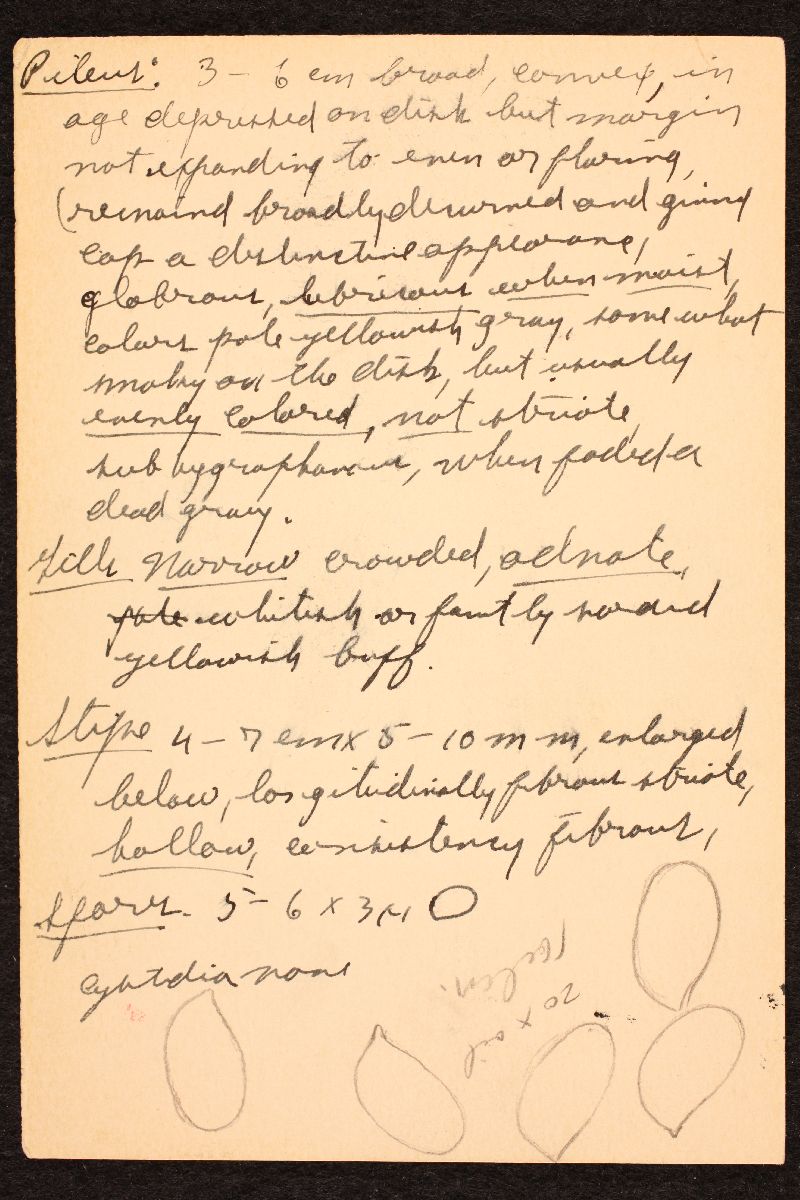 Pileus: 3 - 6 cm broad, convex, in
age depressed on disk but margin
not expanding to even or flaring,
(remaind broadly decurved and giving
cap a distinctive appearane,
glabrous, lubricous when moist,
colors pale yellowish gray, somewhat
smoky on the disk, but usually
evenly colored, not striate,
subhygrophanous, when faded a
dead gray.
Gills Narrow crowded, adnate,
pale whitish or faintly sordid
yellowish buff.
Stipe 4 - 7 cm x 5 - 10 mm, enlarged
below, longitudinally fibrous striate,
hollow, consistency fibrous,
Spores. 5 - 6 x 3 µ
cystidia none
20 x oil